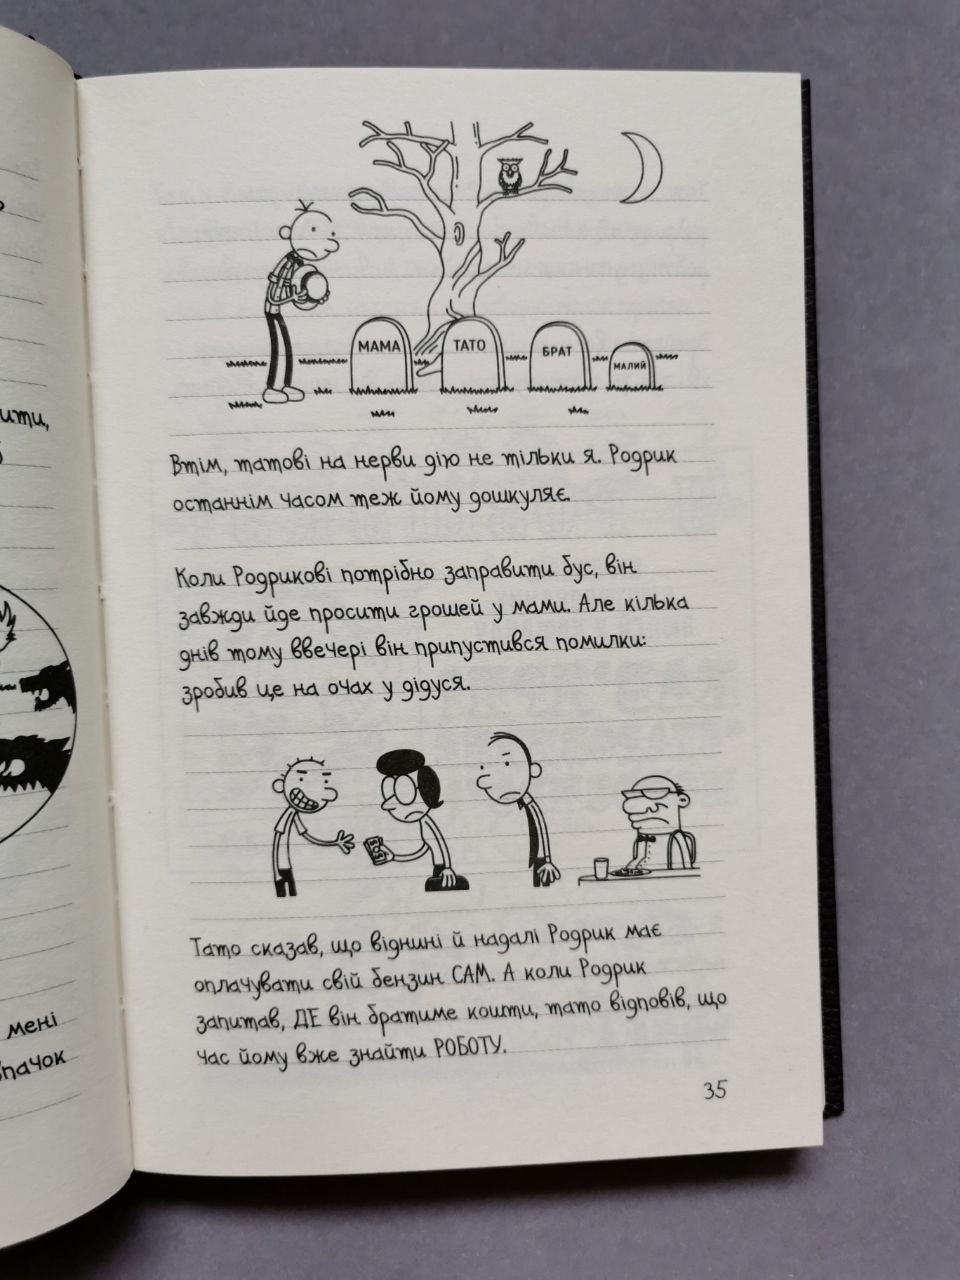 ити,
мені
пачок
МАМА
ТАТО
БРАТ
МАЛИЙ
Втім, татові на нерви дію не тільки я. Родрик
останнім часом теж йому дошкуляє.
Коли Родрикові потрібно заправити бус, він
завжди йде просити грошей у мами. Але кілька
днів тому ввечері він припустився помилки:
зробив це на очах у дідуся.
Тато сказав, що віднині й надалі Родрик має
оплачувати свій бензин САМ. А коли Родрик
запитав, ДЕ він братиме кошти, тато відповів, що
час йому вже знайти РОБОТУ.
35